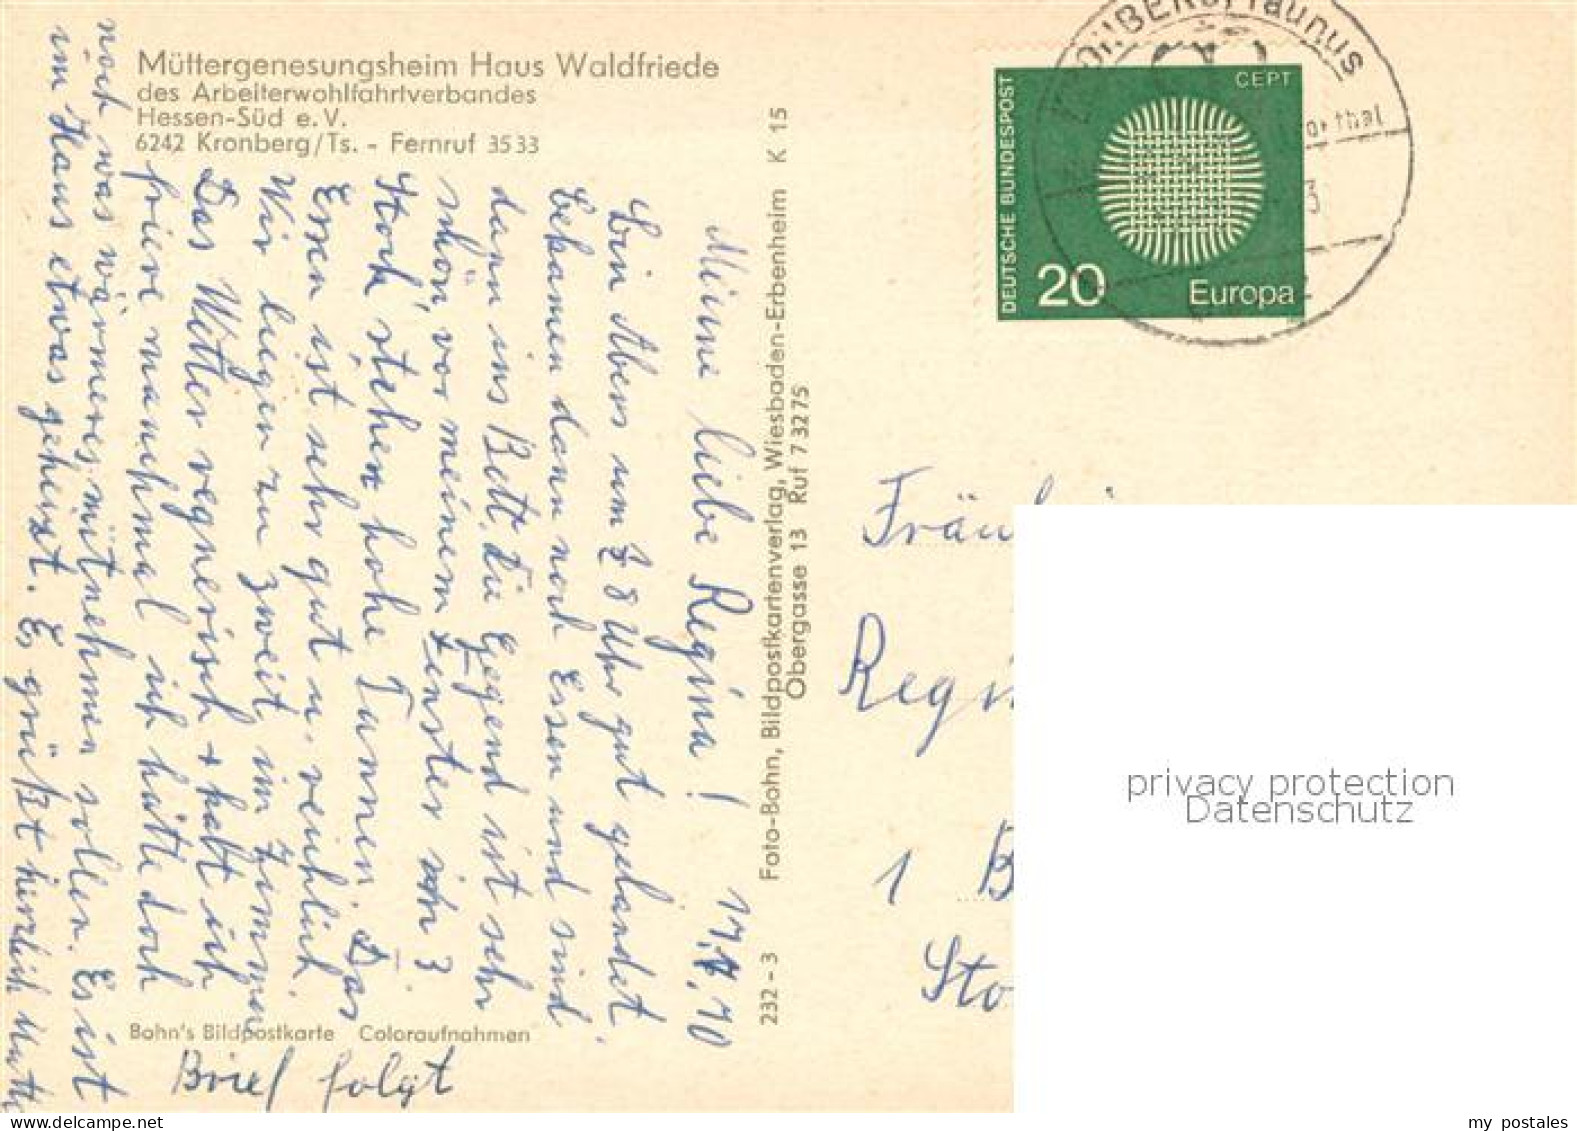 Müttergenesungsheim Haus Waldfriede
des Arbeiterwohlfahrtverbandes
Hessen-Süd e. V.
6242 Kronberg/Ts. - Fernruf 3533
Meine liebe Regina! 17.7.70
Ein Abens um 8 Uhr gut gelandet.
bekamen dann noch Essen und sind
dann ins Bett, die Gegend ist sehr
schön, vor meinem Fenster im 3
Stock stehen hohe Tannen. Das
Essen ist sehr gut u. reichlich.
Wir liegen zu zweit im Zimmer
Das Wetter regnerisch + kalt ich
friere manchmal ich hätte doch
noch was wärmeres mitnehmen sollen. Es ist
im Haus etwas geheizt. Es grüßt herzlich Mutti
Brief folgt
Bohn's Bildpostkarte Coloraufnahmen
232-3 Foto-Bohn, Bildpostkartenverlag, Wiesbaden-Erbenheim K 15
Obergasse 13 Ruf 73275
DEUTSCHE BUNDESPOST
CEPT
20 Europa
Taunus
1 B
Sto
privacy protection
Datenschutz
my postales